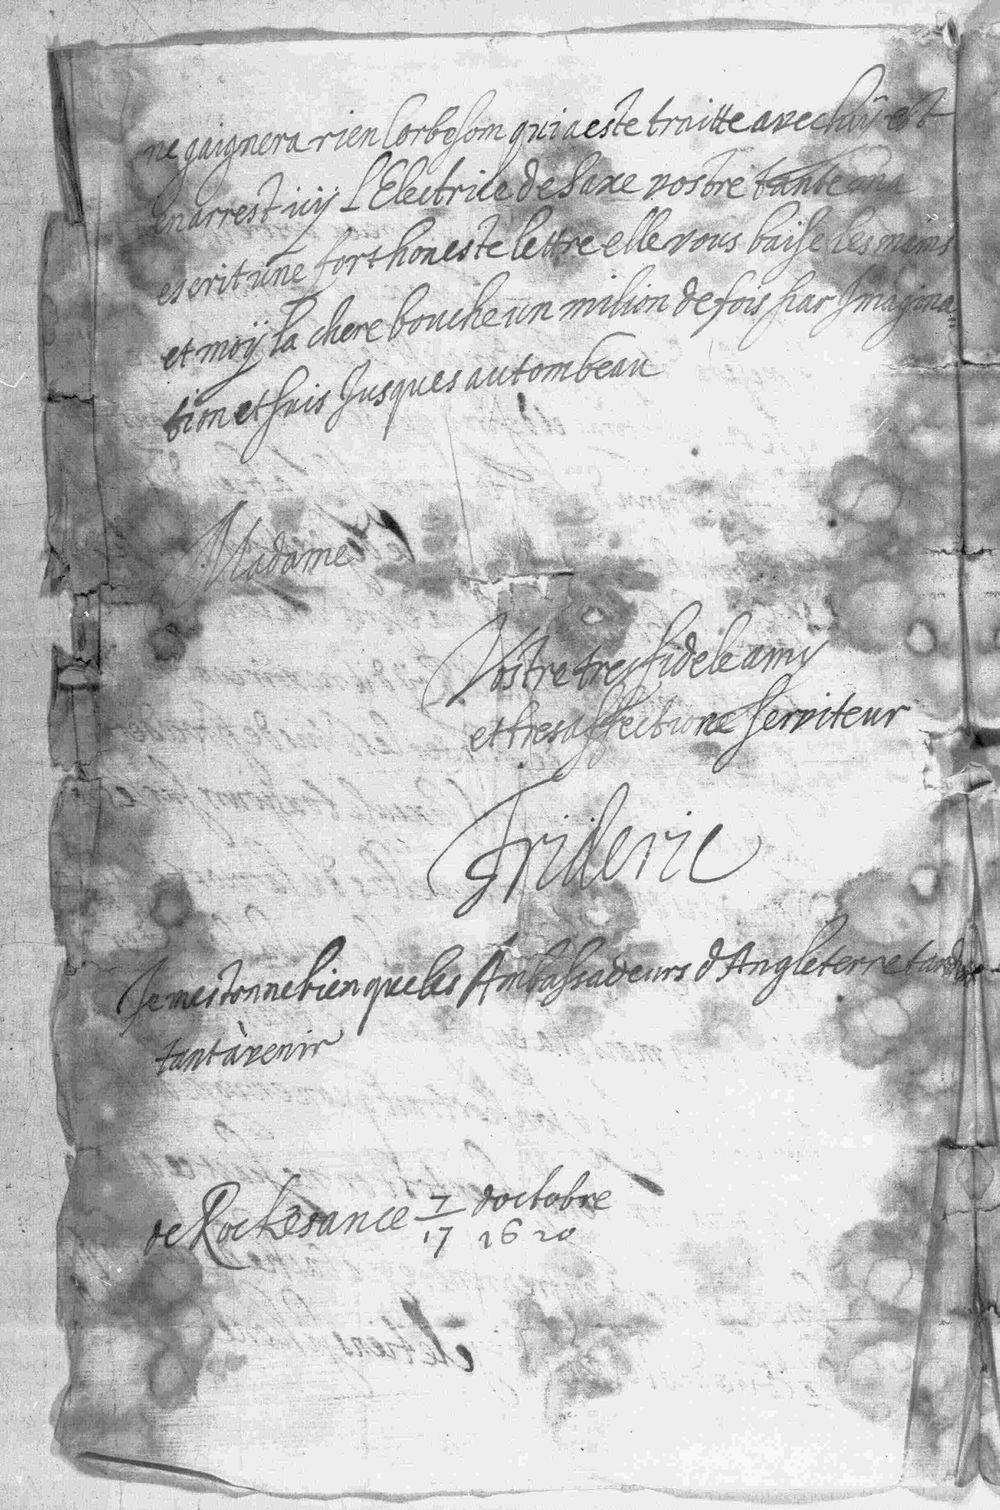 ne gaignera rien Corbesom qui a este traitte avec luÿ est
en arrest icÿ L'Electrice de Saxe vostre tante m'a
escrit une fort honeste lettre elle vous baise les mains
et moÿ la chere bouche un milion de fois par Imagina=
tion et suis Jusques au tombeau
Madame
Vostre tres fidele amy
et tres affectioné serviteur
Frideric
Je m'estonne bien que les Ambassadeurs d'Angleterre tardent
tant à venir
de Rockesance 7/17 d'octobre
1620